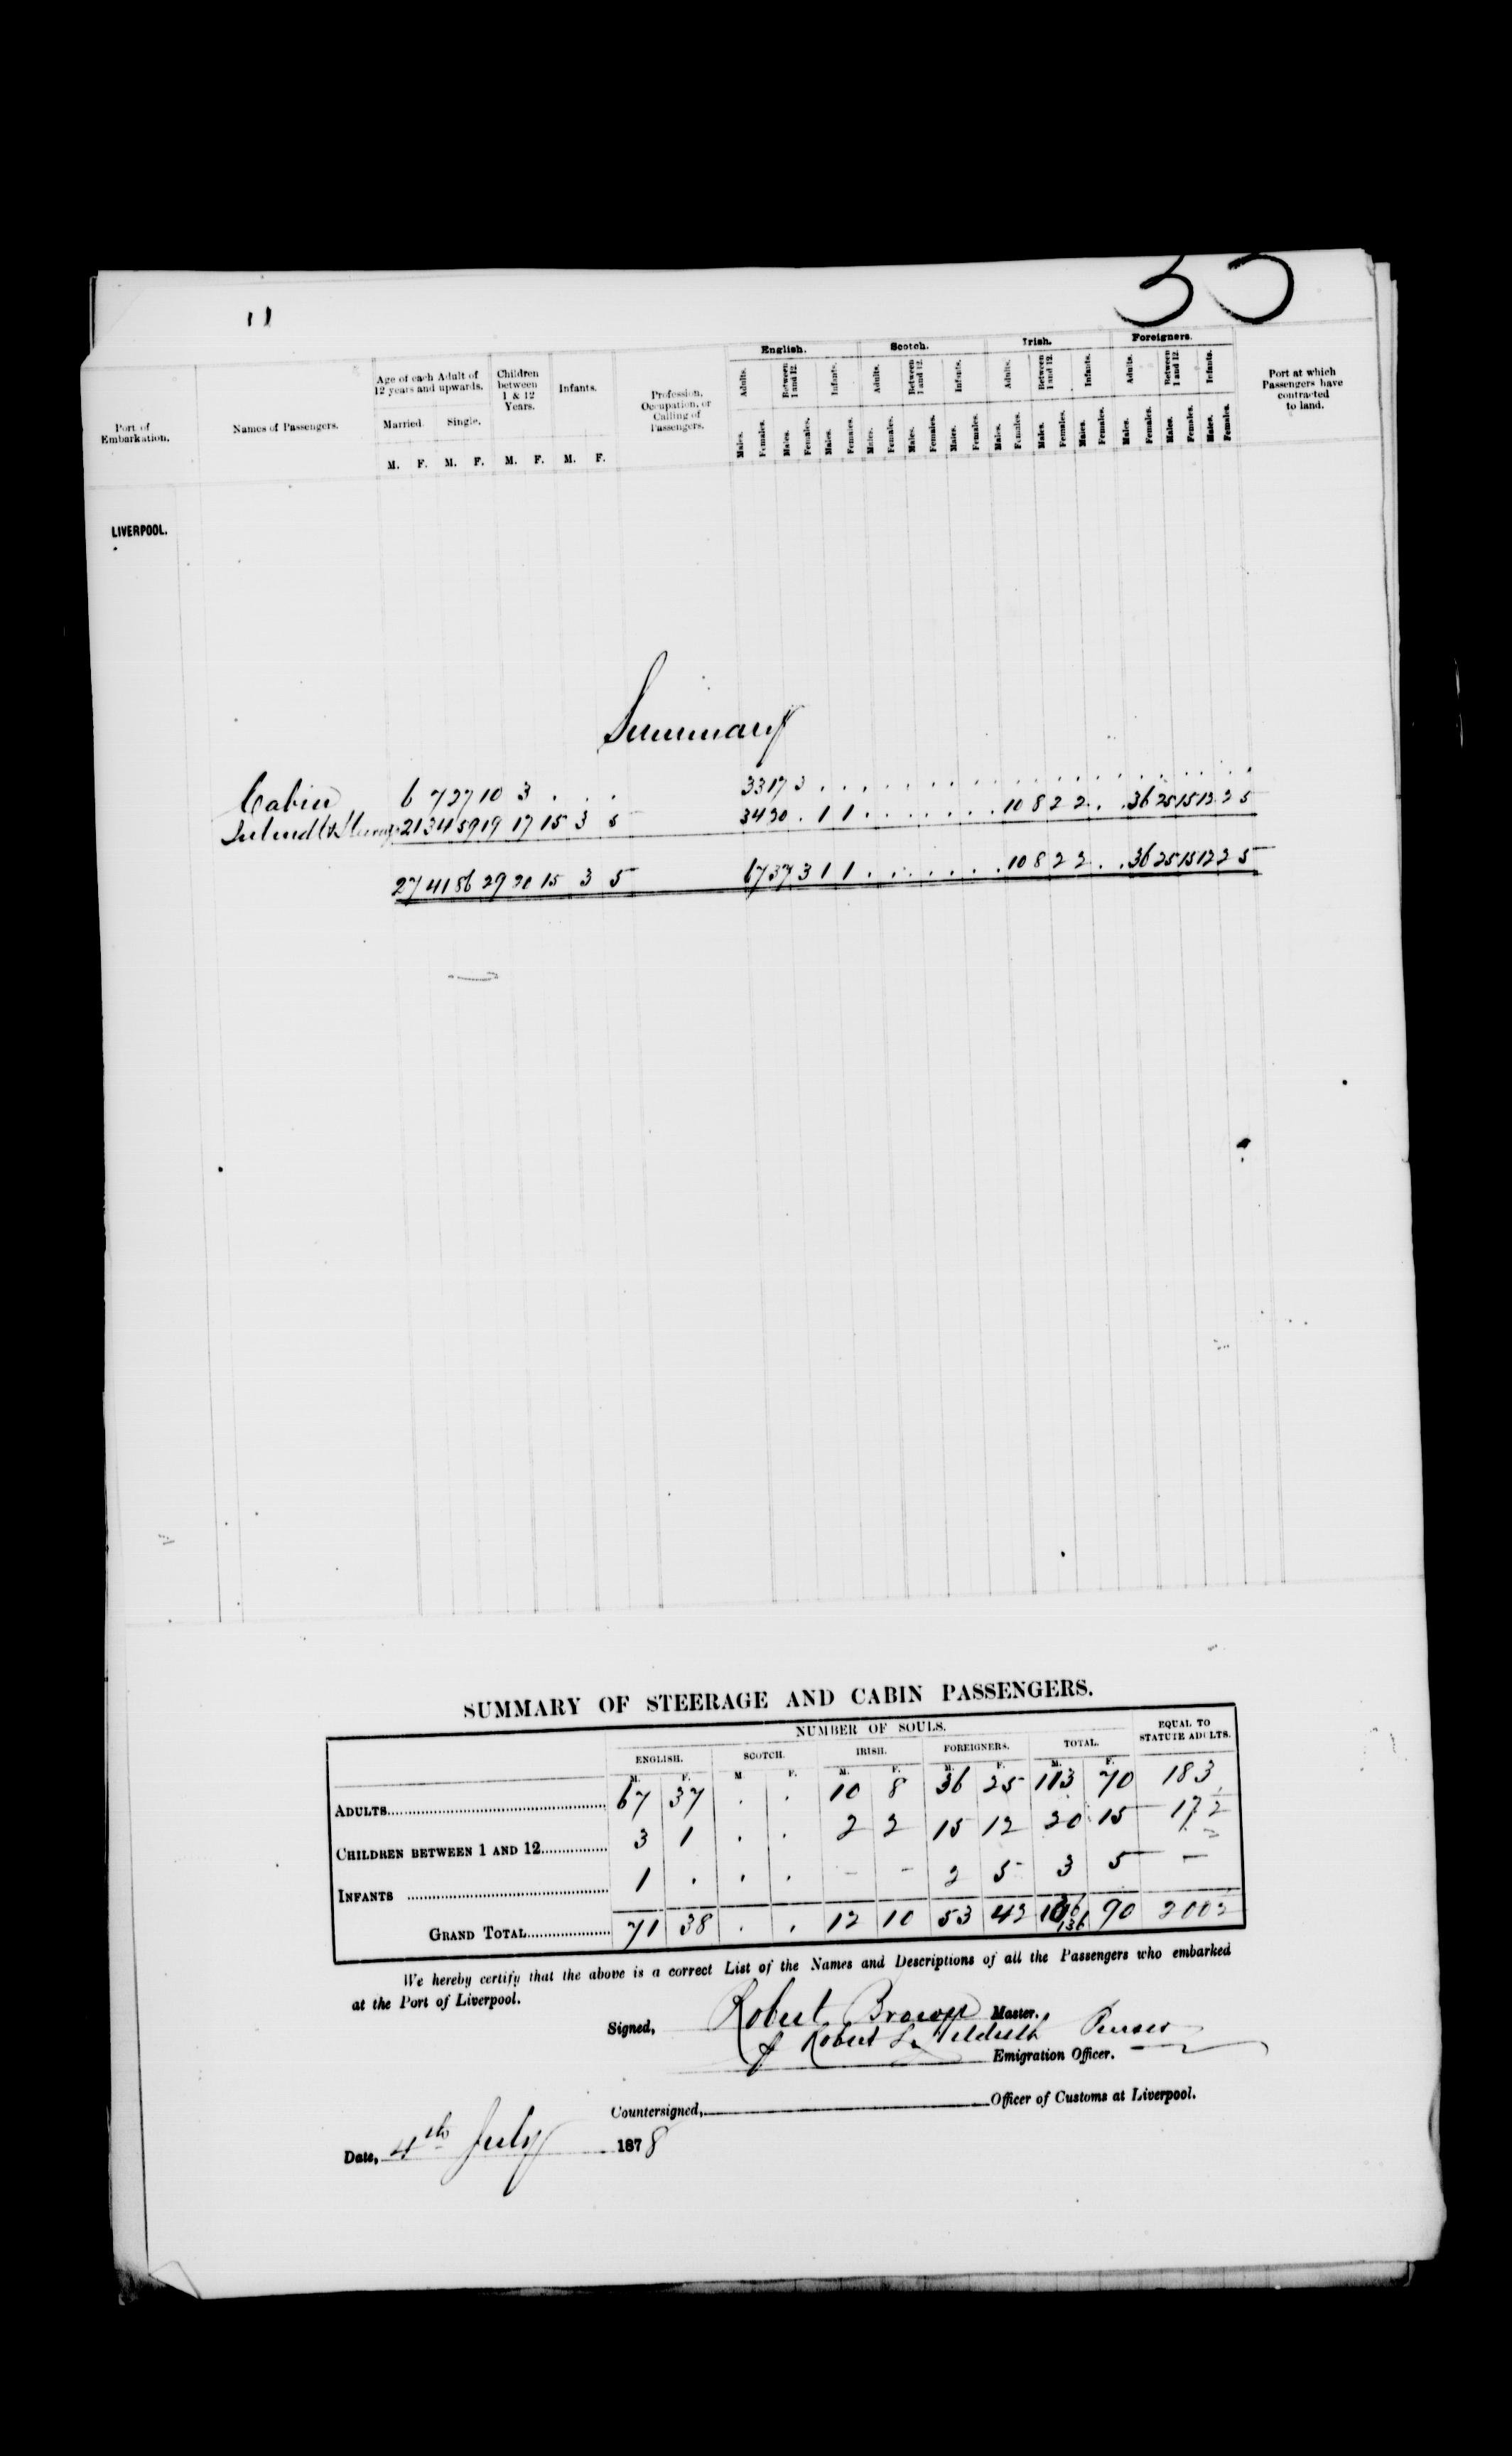 11
35
English. Scotch. Irish. Foreigners.
Port of Embarkation.
Names of Passengers.
Age of each Adult of 12 years and upwards.
Married. Single.
Children between 1 & 12 Years.
Infants.
M. F. M. F. M. F. M. F.
Profession, Occupation, or Calling of Passengers.
Adults. Between 1 and 12. Infants. Adults. Between 1 and 12. Infants. Adults. Between 1 and 12. Infants. Adults. Between 1 and 12. Infants.
Males. Females. Males. Females. Males. Females. Males. Females. Males. Females. Males. Females. Males. Females. Males. Females. Males. Females. Males. Females. Males. Females. Males. Females.
Port at which Passengers have contracted to land.
LIVERPOOL.
Summary
Cabin 6 7 27 10 3 . . . 33 17 3 . . . . . . . . . . . . . . . . . . . . .
21 34 59 19 17 15 3 5 34 20 . 1 1 . . . . . . . 10 8 2 2 . . 36 25 15 12 2 5
27 41 86 29 20 15 3 5 67 37 3 1 1 . . . . . . . 10 8 2 2 . . 36 25 15 12 2 5
SUMMARY OF STEERAGE AND CABIN PASSENGERS.
NUMBER OF SOULS. EQUAL TO STATUTE ADULTS.
ENGLISH. SCOTCH. IRISH. FOREIGNERS. TOTAL.
M. F. M F. M. F. M. F. M. F.
ADULTS 67 37 . . 10 8 36 25 113 70 183
CHILDREN BETWEEN 1 AND 12 3 1 . . 2 2 15 12 20 15 17½
INFANTS 1 . . . - - 2 5 3 5 -
GRAND TOTAL 71 38 . . 12 10 53 42 136 90 200½
We hereby certify that the above is a correct List of the Names and Descriptions of all the Passengers who embarked
at the Port of Liverpool.
Signed, Robert Brown Master.
Robert Purser
Emigration Officer.
Countersigned, Officer of Customs at Liverpool.
Date, 4th July 1878